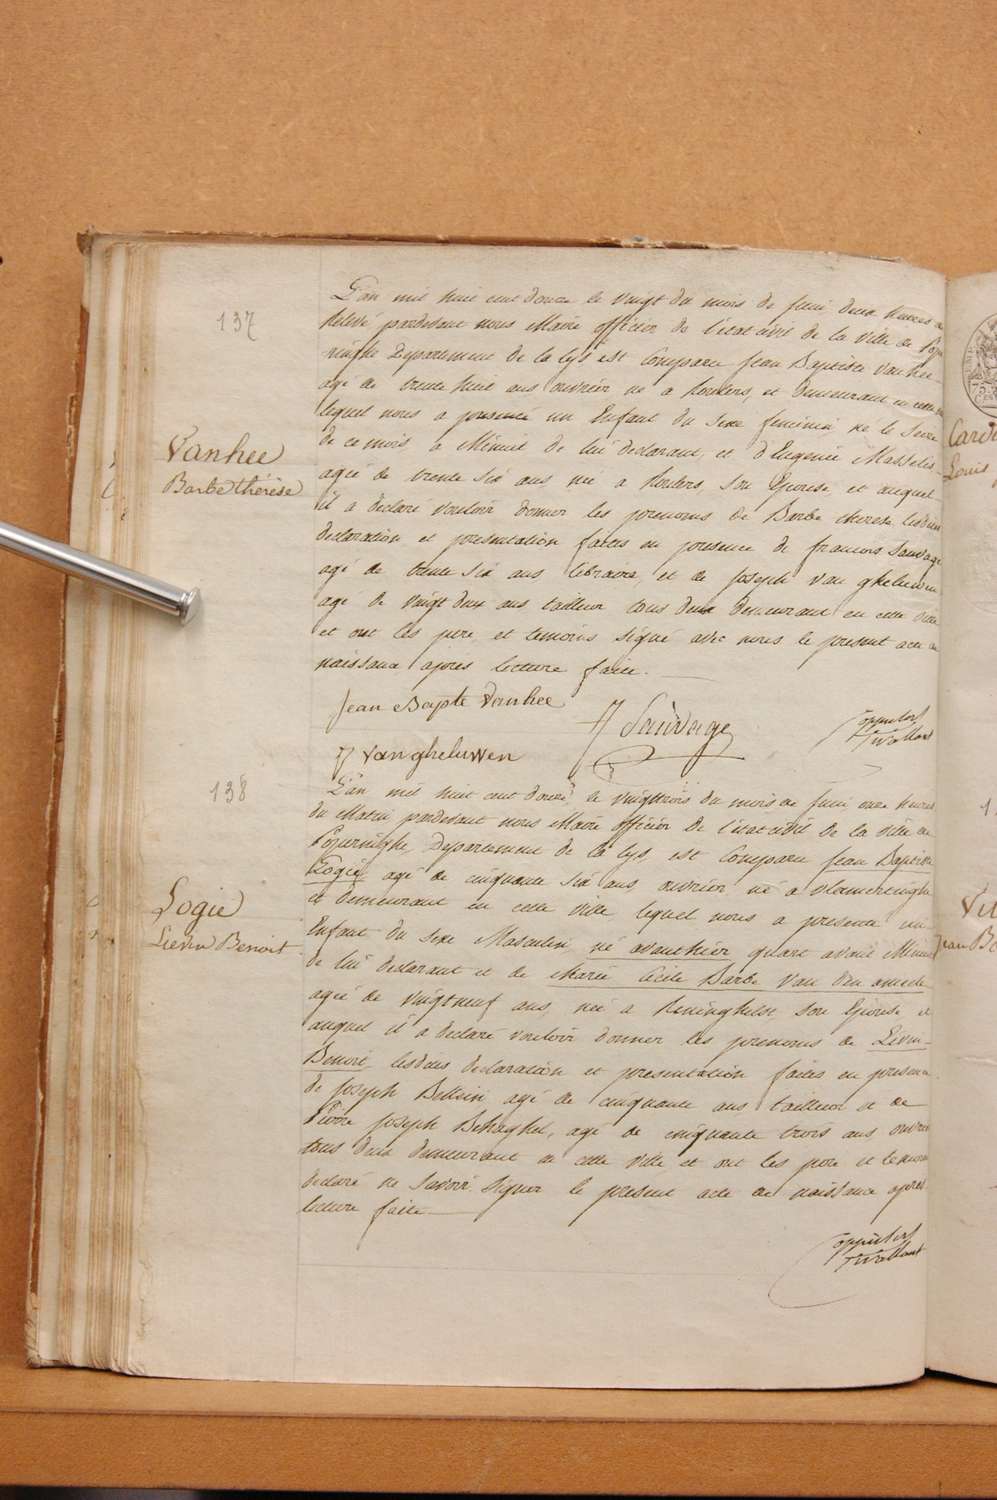 137
L'an mil huit cent douze le vingt du mois de juin deux heures de
Relevé pardevant nous Maire officier de l'état civil de la ville de Pope
ringhe Departement de la Lys est Comparu Jean Baptiste Vanhee
agé de trente huit ans ouvrier né a Roulers, et demeurant en cette
lequel nous a presenté un Enfant du sexe feminin né le Seize
de ce mois a Minuit de lui declarant, et d'Eugenie Masselis
agée de trente six ans née a Roulers, Son Epouse, et auquel
il a declaré vouloir donner les prenoms de Barbe therese lesdites
declaration et presentation faites en presence de francois Sauvage
agé de trente Six ans libraire, et de Joseph van gheluwen
agé de vingt deux ans tailleur tous deux demeurant en cette ville
et ont les pere et temoins signé avec nous le present acte de
naissance après lecture faite.
Vanhee
Barbe thérèse
Jean Bapte Vanhee
f Sauvage
J Vangheluwen
138
L'an mil huit cent douze, le vingttrois du mois de juin onze heures
du Matin pardevant nous Maire officier de l'état civil de la ville de
Poperinghe, Departement de la Lys, est Comparu Jean Baptiste
Logie, agé de cinquante six ans, ouvrier né a vlamertinghe
et demeurant en cette ville, lequel nous a presenté un
Enfant du sexe Masculin, né avanthier quart avant Minuit
de lui declarant et de Marie Cecile Barbe Van den amele
agée de vingtneuf ans, née a Reninghelst Son Epouse et
auquel il a declaré vouloir donner les prenoms de Lievin
Benoit, lesdites declaration et presentation faites en presence
de Joseph agé de cinquante ans tailleur et de
Pierre Joseph Behaghel, agé de cinquante trois ans ouvrier
tous deux demeurant en cette ville, et ont les pere et temoins
declaré ne Savoir Signer le present acte de naissance après
lecture faite
Logie
Lievin Benoit